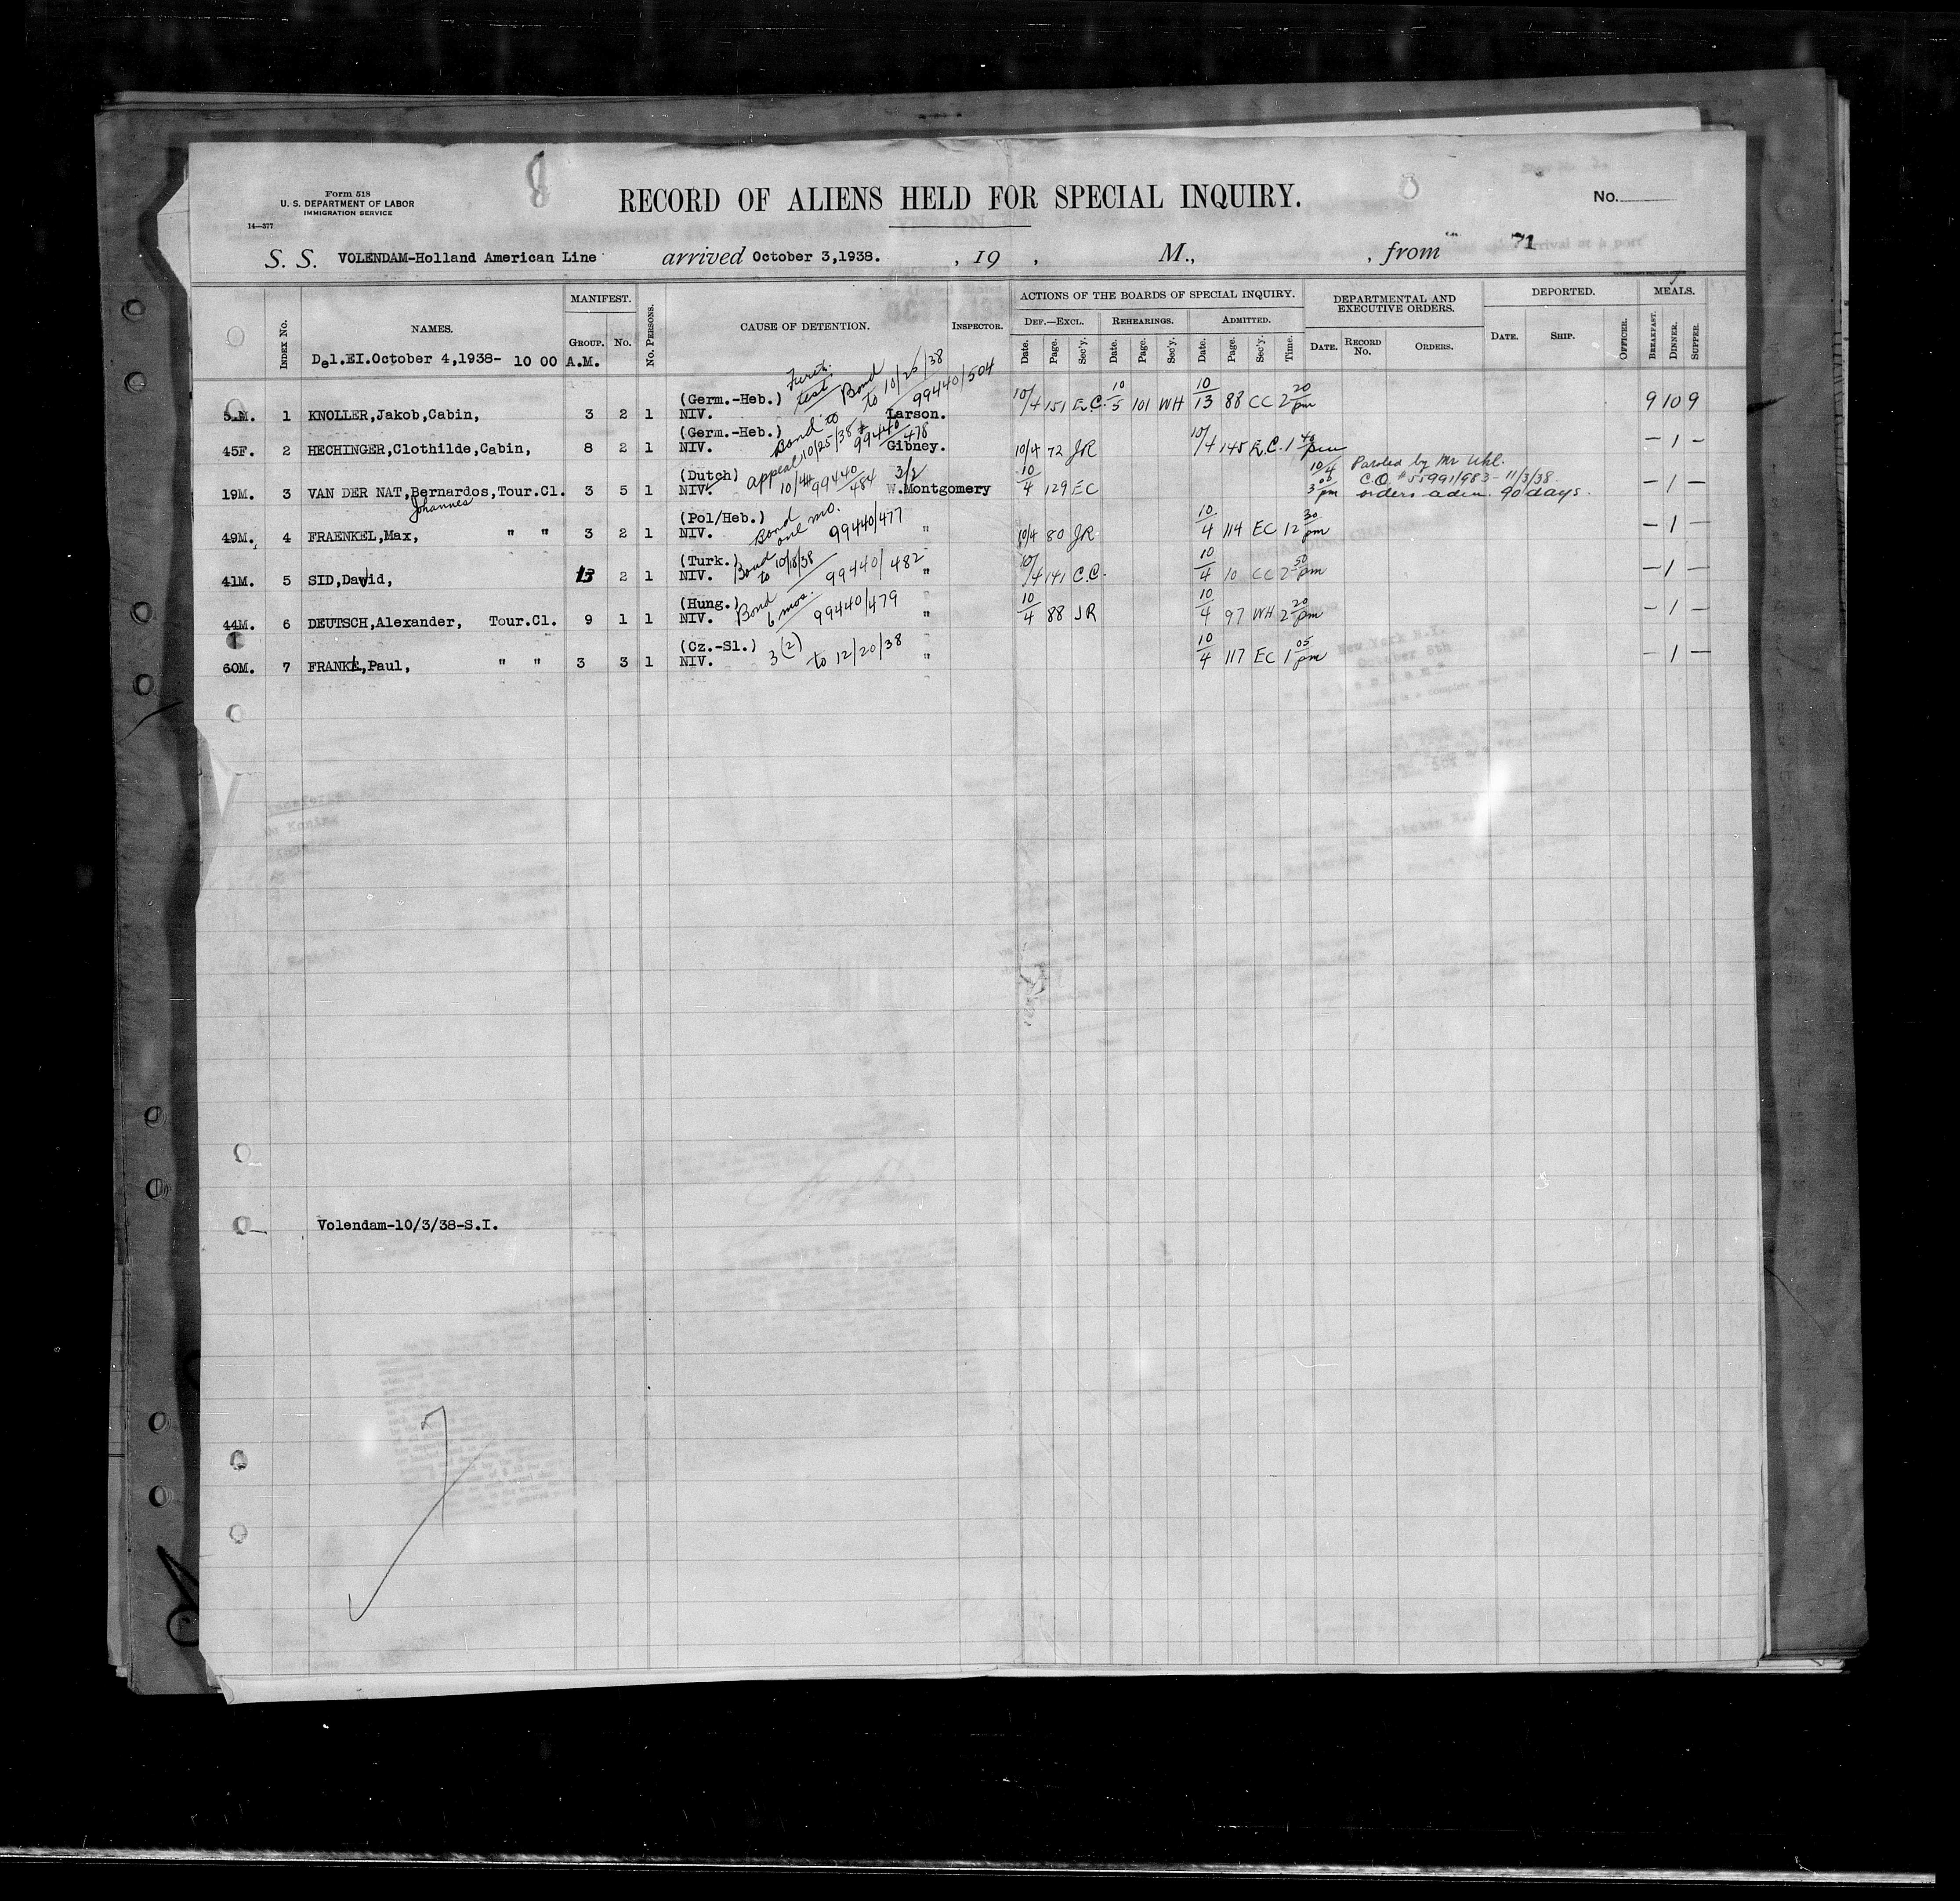 Form 518
U. S. DEPARTMENT OF LABOR
IMMIGRATION SERVICE
14—377
8
RECORD OF ALIENS HELD FOR SPECIAL INQUIRY.
No.
S. S. VOLENDAM-Holland American Line arrived October 3,1938. , 19 , M., , from 71
INDEX No. NAMES. MANIFEST. GROUP. No. No. PERSONS. CAUSE OF DETENTION. INSPECTOR. ACTIONS OF THE BOARDS OF SPECIAL INQUIRY. DEF.—EXCL. Date. Page. Sec'y. REHEARINGS. Date. Page. Sec'y. ADMITTED. Date. Page. Sec'y. Time. DEPARTMENTAL AND EXECUTIVE ORDERS. DATE. RECORD No. ORDERS. DEPORTED. DATE. SHIP. OFFICER. MEALS. BREAKFAST. DINNER. SUPPER.
Del.EI.October 4,1938- 10 00 A.M.
(Germ.-Heb.) test Bond to 10/25/38 99440/504
1 KNOLLER,Jakob,Cabin, 3 2 1 NIV. Larson. 10/4 151 E.C. 10/5 101 WH 10/13 88 CC 2 20 pm 9 10 9
(Germ.-Heb.) Bond to 10/25/38 99440/478
45F. 2 HECHINGER,Clothilde,Cabin, 8 2 1 NIV. Gibney. 10/4 72 JR 10/4 145 E.C. 1 40 pm — 1 —
(Dutch) appeal 10/4 99440/484 3/2 10/4 Paroled by Mr Uhl.
19M. 3 VAN DER NAT,Bernardos,Tour.Cl. 3 5 1 NIV. W.Montgomery 10/4 129 EC 3 pm C.O. # 55991/983 - 11/3/38 orders adm. 90 days. — 1 —
Johannes
(Pol/Heb.) Bond one mo. 99440/477
49M. 4 FRAENKEL,Max, " " 3 2 1 NIV. " 10/4 80 JR 10/4 114 EC 12 30 pm — 1 —
(Turk.) Bond to 10/18/38 99440/482
41M. 5 SID,David, 13 2 1 NIV. " 10/4 141 C.C. 10/4 10 CC 2 50 pm — 1 —
(Hung.) Bond 6 mos. 99440/479
44M. 6 DEUTSCH,Alexander, Tour.Cl. 9 1 1 NIV. " 10/4 88 JR 10/4 97 WH 2 20 pm — 1 —
(Cz.-Sl.) 3(2) to 12/20/38
60M. 7 FRANKL,Paul, " " 3 3 1 NIV. " 10/4 117 EC 1 05 pm — 1 —
Volendam-10/3/38-S.I.
7